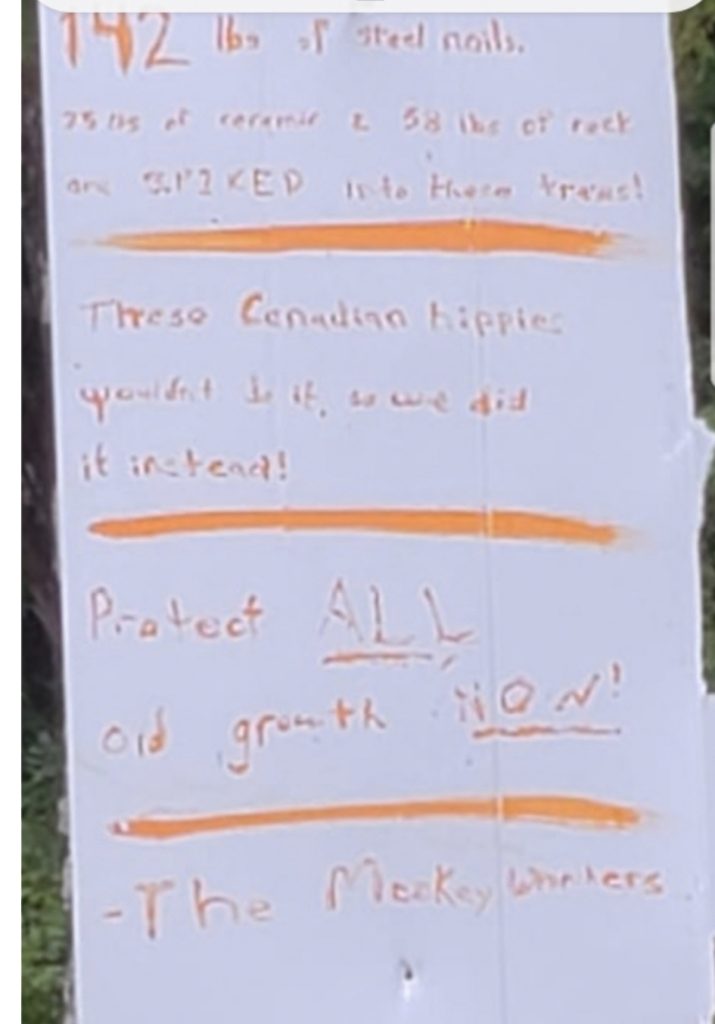 142 lbs of steel nails.
25 lbs of ceramic & 58 lbs of rock
are SPIKED into these trees!
These Canadian hippies
wouldn't do it, so we did
it instead!
Protect ALL
old growth NOW!
-The Monkey Wrenchers